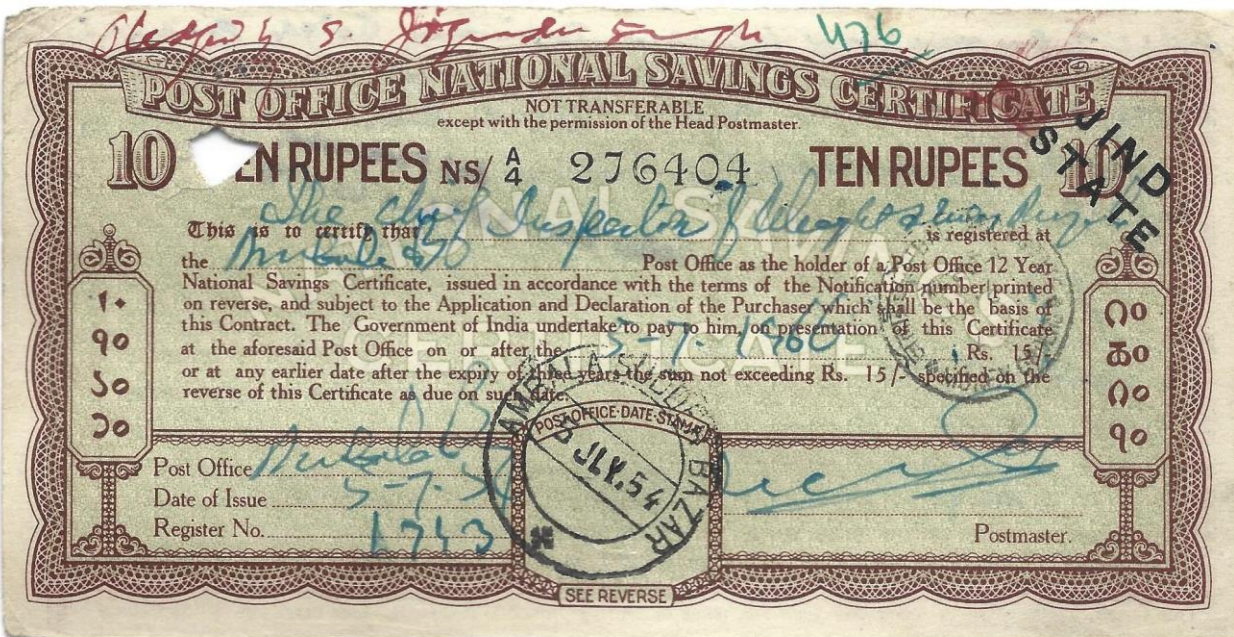 S. 476
POST OFFICE NATIONAL SAVINGS CERTIFICATE
NOT TRANSFERABLE
except with the permission of the Head Postmaster.
10 EN RUPEES NS/ A/4 276404 TEN RUPEES 10
JIND STATE
The Chief Inspector of
This is to certify that is registered at
the Post Office as the holder of a Post Office 12 Year
National Savings Certificate, issued in accordance with the terms of the Notification number printed
on reverse, and subject to the Application and Declaration of the Purchaser which shall be the basis of
this Contract. The Government of India undertake to pay to him, on presentation of this Certificate
at the aforesaid Post Office on or after the 5-7-1966 Rs. 15/-
or at any earlier date after the expiry of three years the sum not exceeding Rs. 15/- specified on the
reverse of this Certificate as due on such date.
१०
૧૦
POST OFFICE-DATE-STAMP
AMBALA SUDDER BAZAR
5 JLY.54
Post Office
Date of Issue 5-7-54
Register No. 1743
Postmaster.
SEE REVERSE